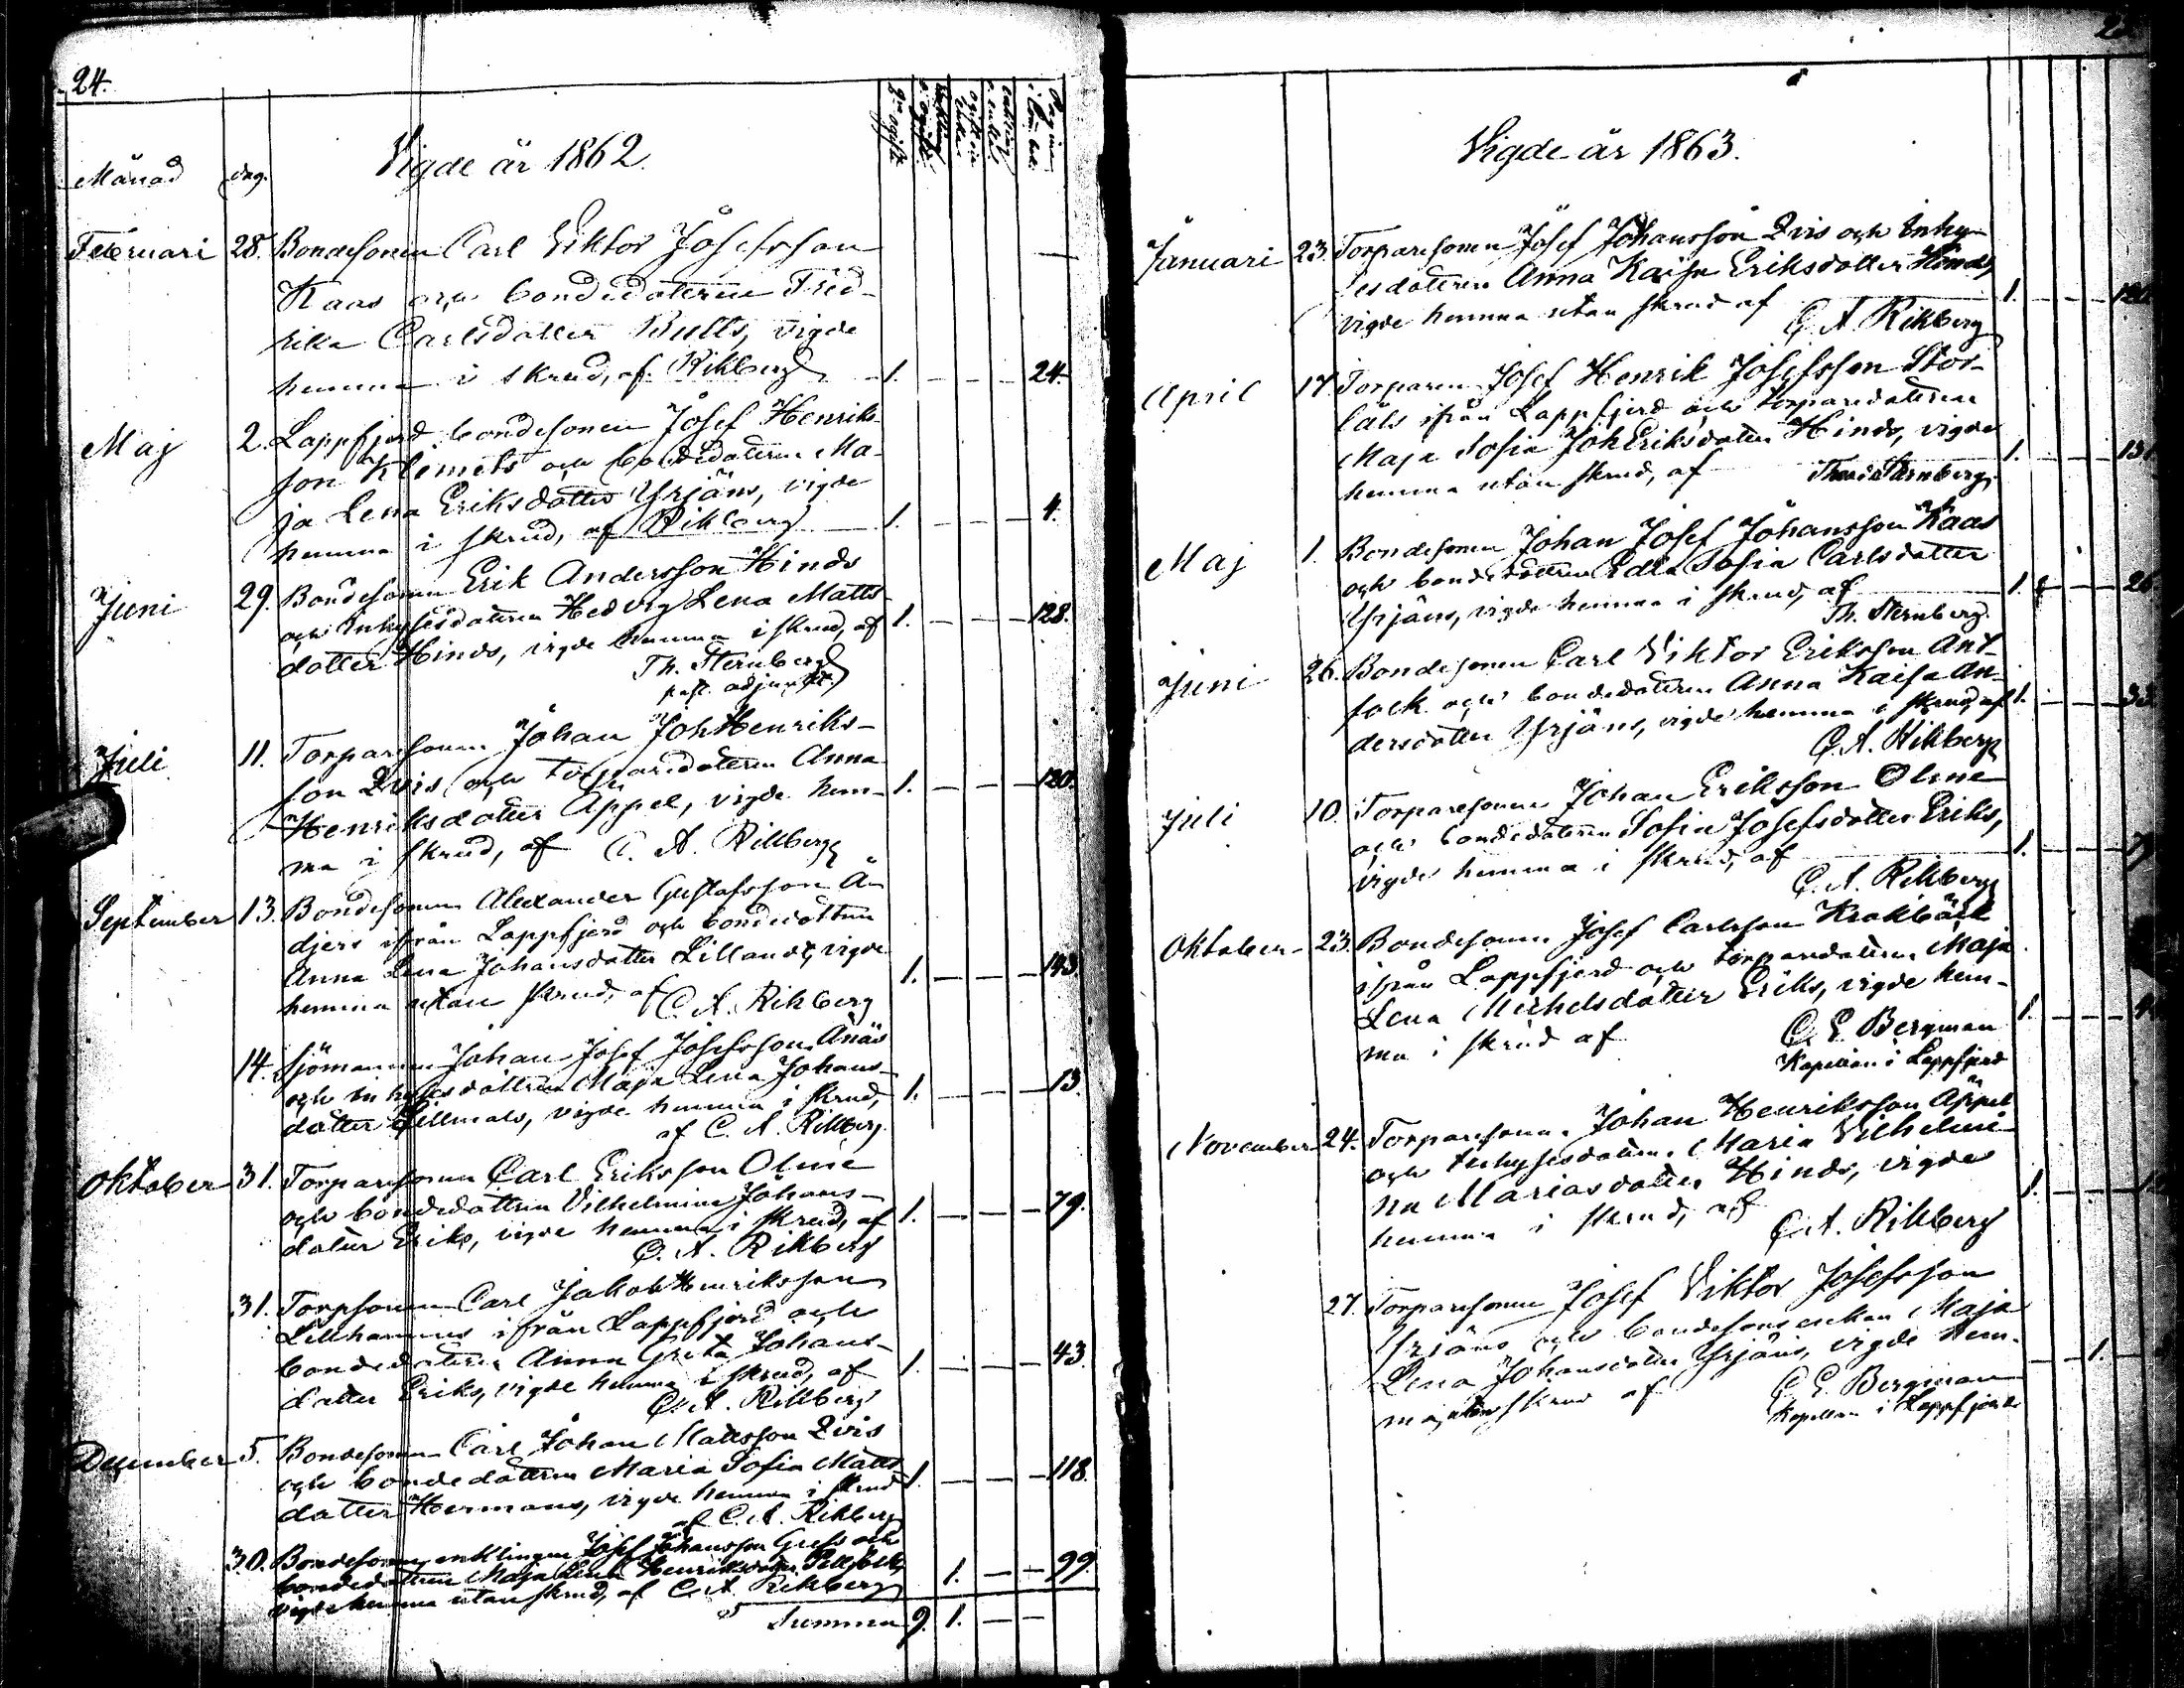 24.
Månad dag. Vigde år 1862.
Februari 28. Bondesonen Carl Viktor Josefsson
Kaas och bondedotteren Fred-
rika Carlsdotter Bults, vigde
hemma i skrud, af Rikberg 1. — — — 24.
Maj 2. Lappfjerd bondesonen Josef Henriks-
son Klemets och bondedottren Ma-
ja Lena Eriksdotter Yrjäns, vigde
hemma i skrud, af Rikberg 1. — — — 4.
Juni 29. Bondesonen Erik Andersson Hinds
och Inhysesdottren Hedvig Lena Matts-
dotter Hinds, vigde hemma i skrud, af 1. — — — 128.
Th. Sternberg
past. adjunkt.
Juli 11. Torparesonen Johan JohHenriks-
son Qvis och torparedotteren Anna
Henriksdotter Appel, vigde hem- 1. — — — 120.
ma i skrud, af C. A. Rikberg
September 13. Bondesonen Alexander Gustafsson Å-
djers ifrån Lappfjerd och bondedottren
Anna Lena Johansdotter Lillandt, vigde
hemma utan skrud, af C. A. Rikberg 1. — — — 143.
14. Sjömannen Johan Josef Josefsson Anäs
och inhysesdottren Maja Lena Johans-
dotter Lillmals, vigde hemma i skrud, 1. — — — 13
af C. A. Rikberg
Oktober 31. Torparesonen Carl Eriksson Olme
och bondedottren Vilhelmina Johans-
dotter Eriks, vigde hemma i skrud, af 1. — — — 79.
C. A. Rikberg
31. Torpsonen Carl Jakob Henriksson
Lillhannus ifrån Lappfjerd och
bondedotteren Anna Greta Johans-
dotter Eriks, vigde hemma i skrud, af 1. — — — 43
C. A. Rikberg
December 5. Bondesonen Carl Johan Mattsson Qvis
och bondedottren Maria Sofia Matts-
dotter Hermans, vigde hemma i skrud 1. — — — 118.
af C. A. Rikberg
30. Bondesonen enklingen Josef Johansson och
bondedottren Maja Lena Henriksdotter
vigde hemma utan skrud, af C. A. Rikberg 1. — — 99.
Summa 9. 1. — —
Vigde år 1863.
Januari 23. Torparesonen Josef Johansson Qvis och Inhy-
sesdotteren Anna Kaisa Eriksdotter Hinds,
vigde hemma utan skrud af 1. — — —
C. A. Rikberg
April 17. Torparen Josef Henrik Josefsson Stor-
ifrån Lappfjerd och torparedotteren
Maja Sofia JohEriksdotter Hinds, vigde
hemma utan skrud, af 1. — — —
Sternberg
Maj 1. Bondesonen Johan Josef Johansson Kaas
och bondedottren Edla Sofia Carlsdotter
Yrjäns, vigde hemma i skrud, af 1. — — — 26
Th. Sternberg.
Juni 26. Bondesonen Carl Viktor Eriksson Ant-
folk och bondedotteren Anna Kaisa An-
dersdotter Yrjäns, vigde hemma i skrud, af 1. — — —
C. A. Rikberg
Juli 10. Torparesonen Johan Eriksson Olme
och bondedotteren Sofia Josefsdotter Eriks,
vigde hemma i skrud, af 1. — — —
C. A. Rikberg
Oktober 23. Bondesonen Josef Carlsson Krakbäck
ifrån Lappfjerd och torparedottren Maja
Lena Michelsdotter Eriks, vigde hem-
ma i skrud af 1. — — —
C. E. Bergman
Kapellan i Lappfjerd
November 24. Torparesonen Johan Henriksson Appel
och Inhysesdottren Maria Vilhelmi-
na Mariasdotter Hinds, vigde
hemma i skrud, af 1. — — —
C. A. Rikberg
27. Torparesonen Josef Viktor Josefsson
Yrjäns och bondesonsenkan Maja
Lena Johansdotter Yrjäns, vigde hem-
ma, utan skrud af — — 1. —
C. E. Bergman
Kapellan i Lappfjerd